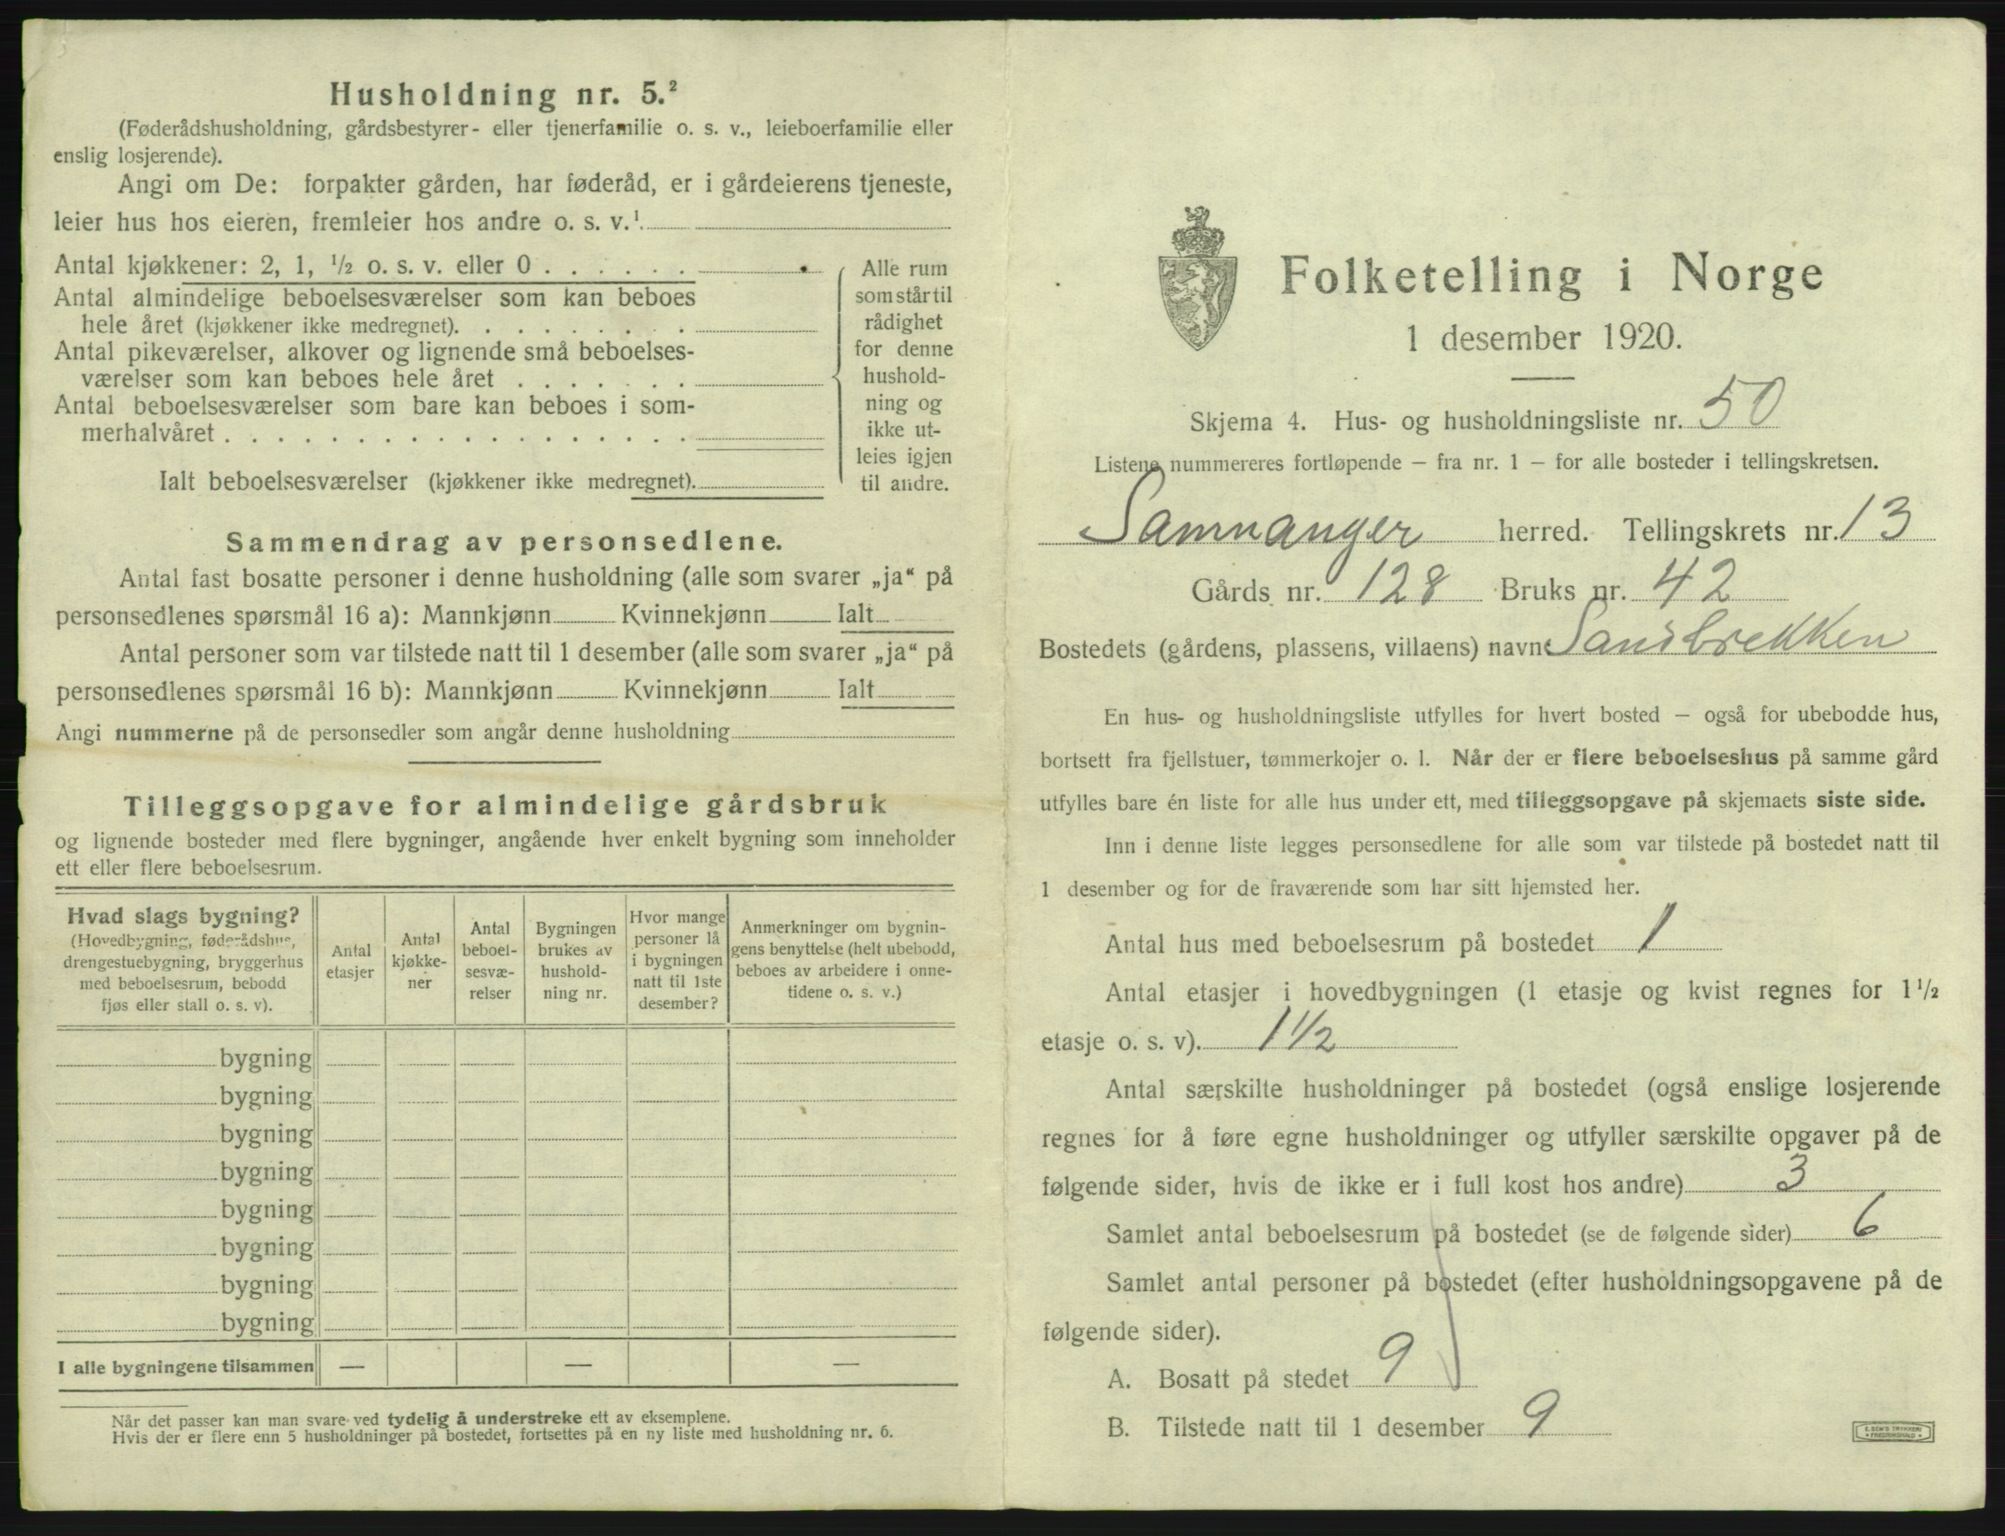 Husholdning nr. 5.²
(Føderådshusholdning, gårdsbestyrer- eller tjenerfamilie o. s. v., leieboerfamilie eller
enslig losjerende).
Angi om De: forpakter gården, har føderåd, er i gårdeierens tjeneste,
leier hus hos eieren, fremleier hos andre o. s. v.¹
Antal kjøkkener: 2, 1, ½ o. s. v. eller 0
Antal almindelige beboelsesværelser som kan beboes
hele året (kjøkkener ikke medregnet).
Antal pikeværelser, alkover og lignende små beboelses-
værelser som kan beboes hele året
Antal beboelsesværelser som bare kan beboes i som-
merhalvåret
Ialt beboelsesværelser (kjøkkener ikke medregnet).
Alle rum
som står til
rådighet
for denne
hushold-
ning og
ikke ut-
leies igjen
til andre.
Sammendrag av personsedlene.
Antal fast bosatte personer i denne husholdning (alle som svarer „ja“ på
personsedlenes spørsmål 16 a): Mannkjønn Kvinnekjønn Ialt
Antal personer som var tilstede natt til 1 desember (alle som svarer „ja“ på
personsedlenes spørsmål 16 b): Mannkjønn Kvinnekjønn Ialt
Angi nummerne på de personsedler som angår denne husholdning
Tilleggsopgave for almindelige gårdsbruk
og lignende bosteder med flere bygninger, angående hver enkelt bygning som inneholder
ett eller flere beboelsesrum.
Hvad slags bygning?
(Hovedbygning, føderådshus,
drengestuebygning, bryggerhus
med beboelsesrum, bebodd
fjøs eller stall o. s. v).
Antal
etasjer
Antal
kjøkke-
ner
Antal
beboel-
sesvæ-
relser
Bygningen
brukes av
hushold-
ning nr.
Hvor mange
personer lå
i bygningen
natt til 1ste
desember?
Anmerkninger om bygnin-
gens benyttelse (helt ubebodd,
beboes av arbeidere i onne-
tidene o. s. v.)
bygning
bygning
bygning
bygning
bygning
bygning
bygning
bygning
I alle bygningene tilsammen — — —
Når det passer kan man svare ved tydelig å understreke ett av eksemplene.
Hvis der er flere enn 5 husholdninger på bostedet, fortsettes på en ny liste med husholdning nr. 6.
Folketelling i Norge
1 desember 1920.
Skjema 4. Hus- og husholdningsliste nr. 50
Listene nummereres fortløpende — fra nr. 1 — for alle bosteder i tellingskretsen.
Samnanger herred. Tellingskrets nr. 13
Gårds nr. 128 Bruks nr. 42
Bostedets (gårdens, plassens, villaens) navn Sandbrekken
En hus- og husholdningsliste utfylles for hvert bosted — også for ubebodde hus,
bortsett fra fjellstuer, tømmerkojer o. l. Når der er flere beboelseshus på samme gård
utfylles bare én liste for alle hus under ett, med tilleggsopgave på skjemaets siste side.
Inn i denne liste legges personsedlene for alle som var tilstede på bostedet natt til
1 desember og for de fraværende som har sitt hjemsted her.
Antal hus med beboelsesrum på bostedet 1
Antal etasjer i hovedbygningen (1 etasje og kvist regnes for 1½
etasje o. s. v). 1½
Antal særskilte husholdninger på bostedet (også enslige losjerende
regnes for å føre egne husholdninger og utfyller særskilte opgaver på de
følgende sider, hvis de ikke er i full kost hos andre) 3
Samlet antal beboelsesrum på bostedet (se de følgende sider) 6
Samlet antal personer på bostedet (efter husholdningsopgavene på de
følgende sider).
A. Bosatt på stedet 9
B. Tilstede natt til 1 desember 9